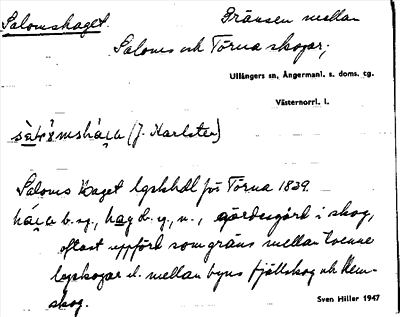 Salomshaget. Gränsen mellan
Saloms och Törna skogar;
Ullångers sn, Ångermanl. s. doms. tg.
Västernorrl. l.
(J. Karlsten)
Saloms Haget lgskhdl för Törna 1829.
b. sg., hag ob. sg., n., gärdesgård i skog,
oftast uppförd som gräns mellan tvenne
byskogar el. mellan byns fjällskog och hem-
skog.
Sven Hiller 1947